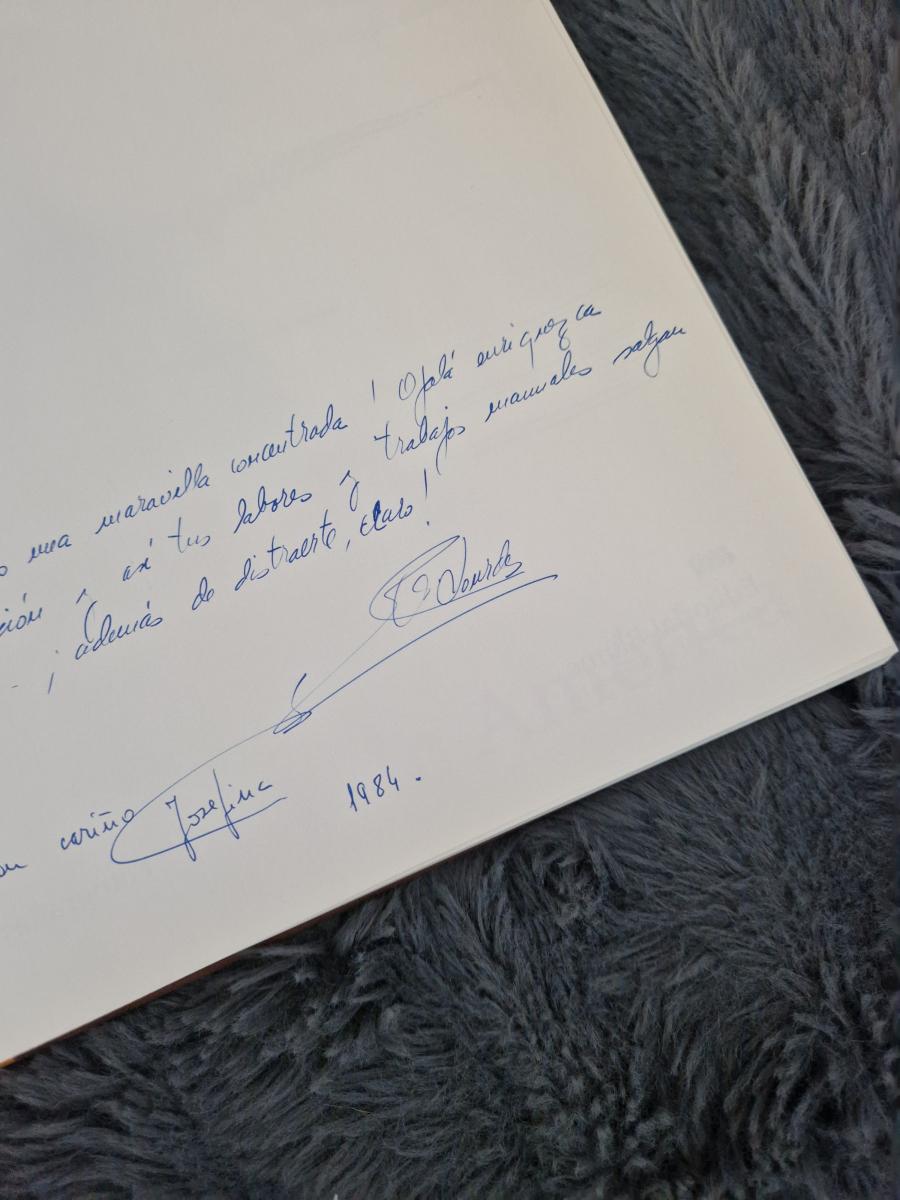 una maravilla concentrada ! Ojalá enriquezca
ción y así tus labores y trabajos manuales salgan
- ¡ además de distraerte, claro!
Lourdes
cariño Josefina 1984.